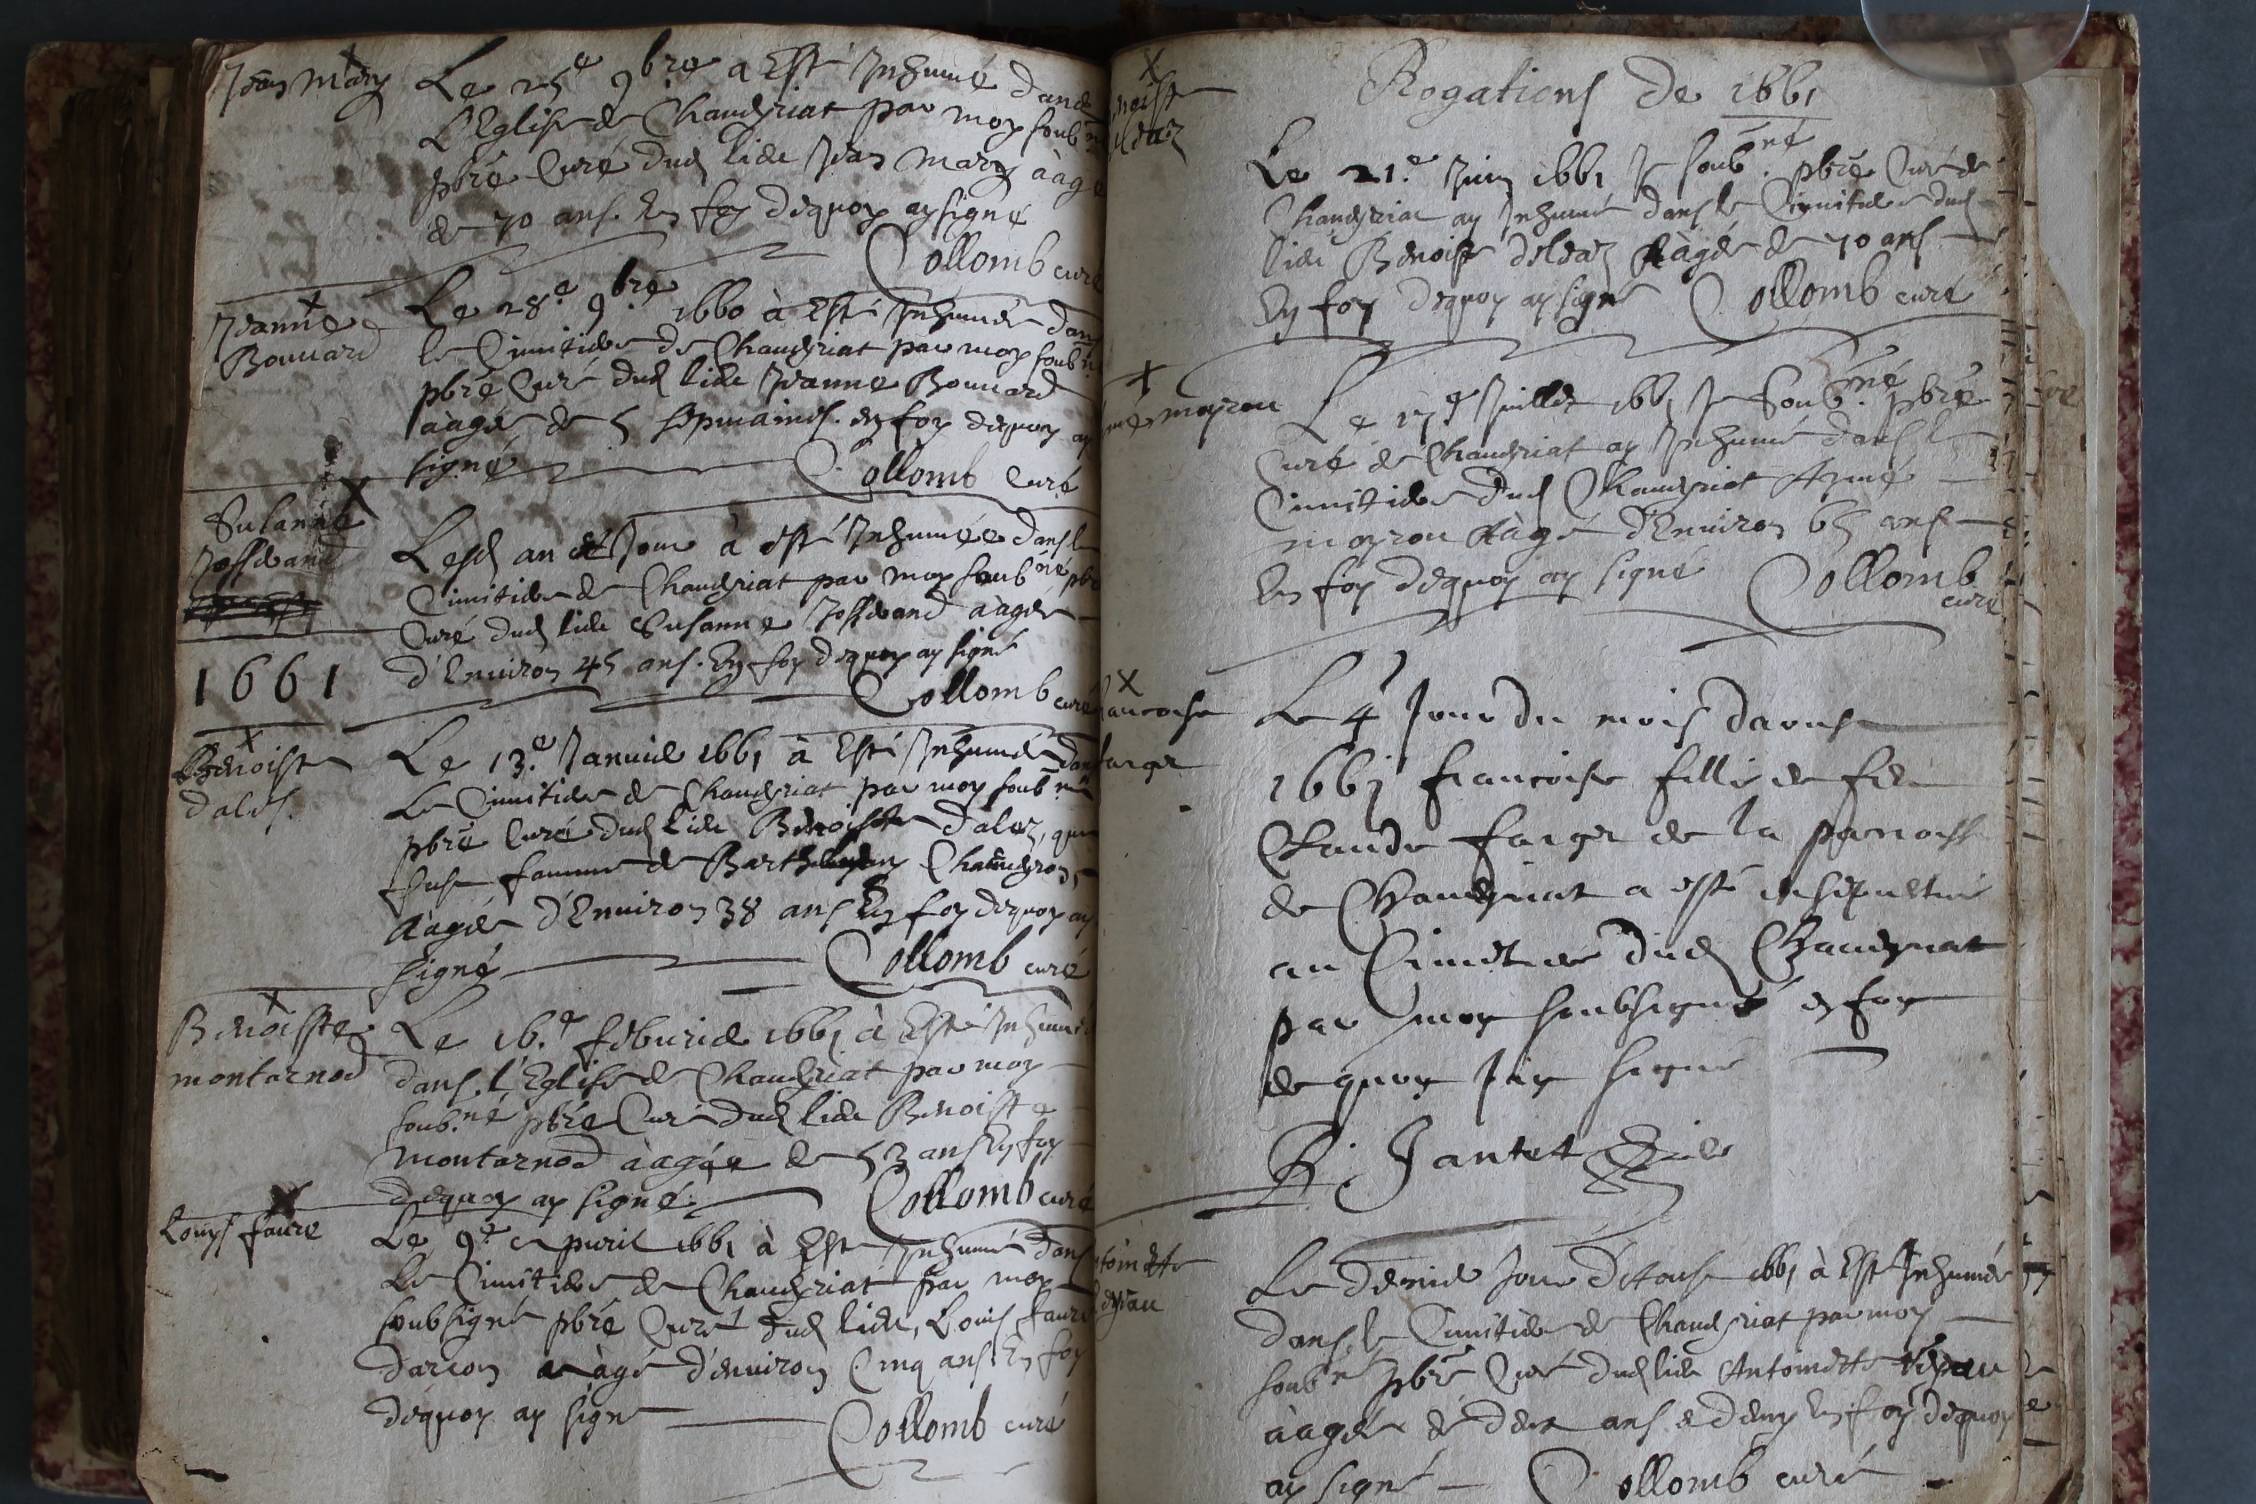 Jean Mary
Le 25e 9bre a Esté Inhumé dans
L'Eglise de Chaudyriat par moy soub
pbre Curé dud lieu Jean Mary aàgé
de 70 ans. En foy dequoy ay signé
Collomb curé
Jeanne
Bouuard
Le 28e 9bre 1660 à Esté Inhumée dans
le Cimitiere de Chaudyriat par moy soub
pbre Curé dud lieu Jeanne Bouuard
aàgée de 5 sepmaines. en foy dequoy ay
signé Collomb Curé
Susanne
Joffreand
Lesd an et Jour à esté Inhumée dans le
Cimitiere de Chaudyriat par moy soubné pbre
Curé dud lieu Susanne Joffreand aàgée
d'Enuiron 45 ans. En foy dequoy ay signé
Collomb curé
1661
Benoiste
dales.
Le 13.e Januier 1661 à Esté Inhumée dans
Le Cimitiere de Chaudyriat par moy soubné
pbre Curé dud lieu Benoiste dalez, qui
fust famme de Barthelemy Chaudyron,
Aàgée d'Enuiron 38 ans En foy dequoy ay
signé Collomb curé
Benoiste
montarnod
Le 16.e feburier 1661 à Esté Inhumée
dans l'Eglise de Chaudyriat par moy
soub.né pbre Curé dud lieu Benoiste
montarnod aàgée de 53 ans En foy
dequoy ay signé. Collomb curé
Louys faure
Le 9e apuril 1661 à Esté Inhumé dans
Le Cimitiere de Chaudyriat par moy
soubsigné pbre Curé dud lieu, Louis faure
darcon aàgé d'enuiron Cinq ans En foy
dequoy ay signé
Collomb curé
Rogations de 1661
noist
deleaz
Le 21.e Juin 1661 Je soub.né pbre Curé de
Chaudyriat ay Inhumé dans le Cimitiere dud
lieu Benoist deleaz Aàgé de 70 ans
En foy dequoy ay signé Collomb curé
me moyrou
Le 17e Juillet 1661 Je Soub.né pbre
Curé de Chaudyriat ay Inhumé dans le
Cimitiere dud Chaudyriat
moyrou Aàgé d'Enuiron 65 ans
En foy dequoy ay signé Collomb
curé
ancoise
farge
Le 4 Jour du mois daoust
1661 francoise fille de feu
Claude farge de la parroisse
de Chaudyriat a esté ensepulturé
au Cimitiere dud Chaudyriat
par moy soubsigné en foy
de quoy Jay signé
Jantet
toinette
Le dernier Jour d'Aoust 1661 à Esté Inhumée
dans le Cimitiere de Chaudyriat par moy
soubné pbre Curé dud lieu Antoinette
aàgée de deux ans e demy En foy dequoy
ay signé Collomb curé